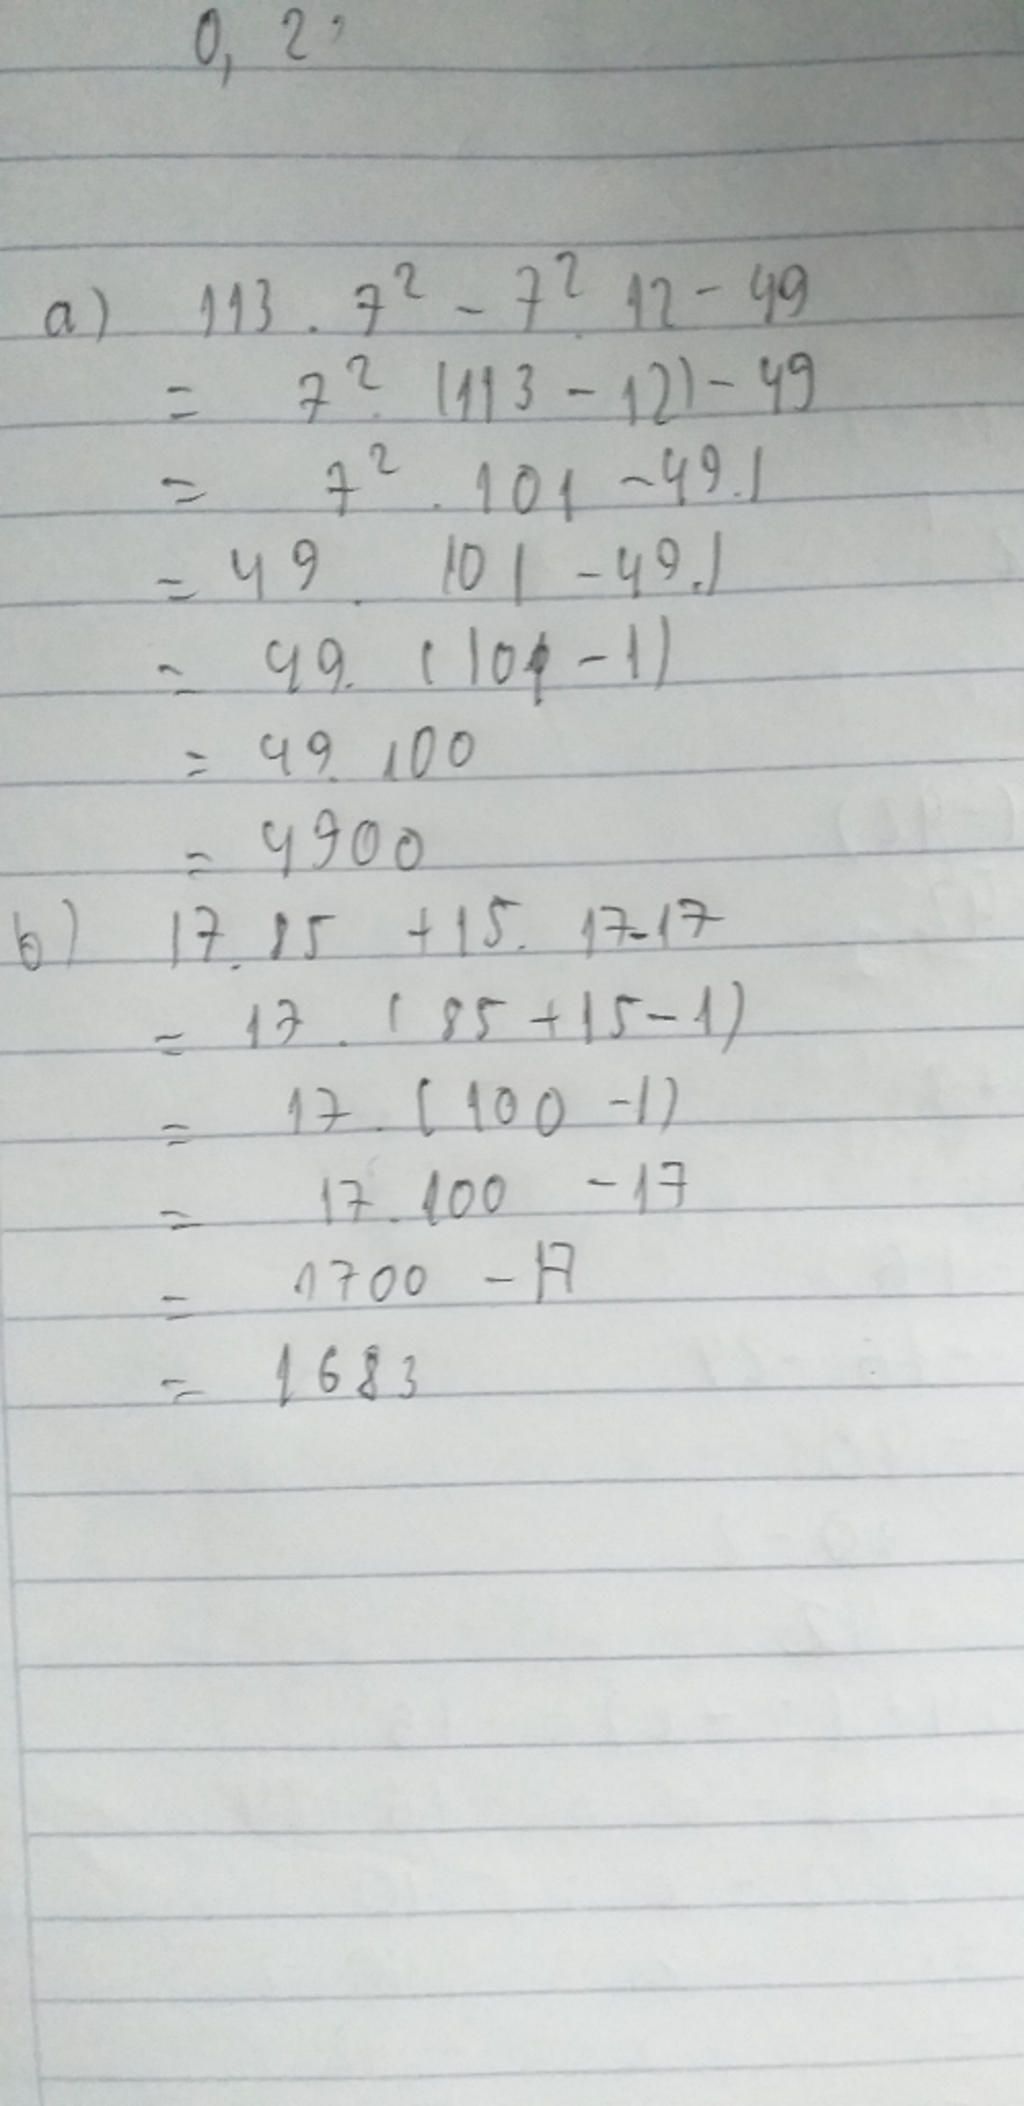 0, 2
a) 113 . 7² - 7² . 12 - 49
= 7² . (113 - 12) - 49
= 7² . 101 - 49.1
= 49 . 101 - 49.1
= 49. (101 - 1)
= 49. 100
= 4900
b) 17. 85 + 15. 17-17
= 17 . ( 85 + 15 - 1)
= 17 . ( 100 - 1)
= 17. 100 - 17
= 1700 - 17
= 1683